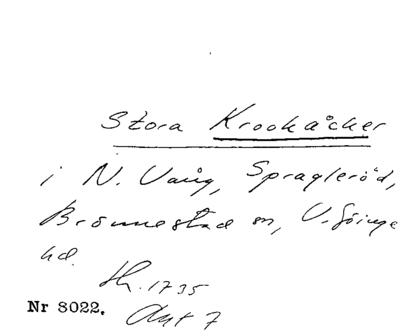 Stora Krookåcker
i N. Vång, Spragleröd,
Brönnestad sn, V. Göinge
hd.
Lh. 1735
Nr 8022. Akt 7